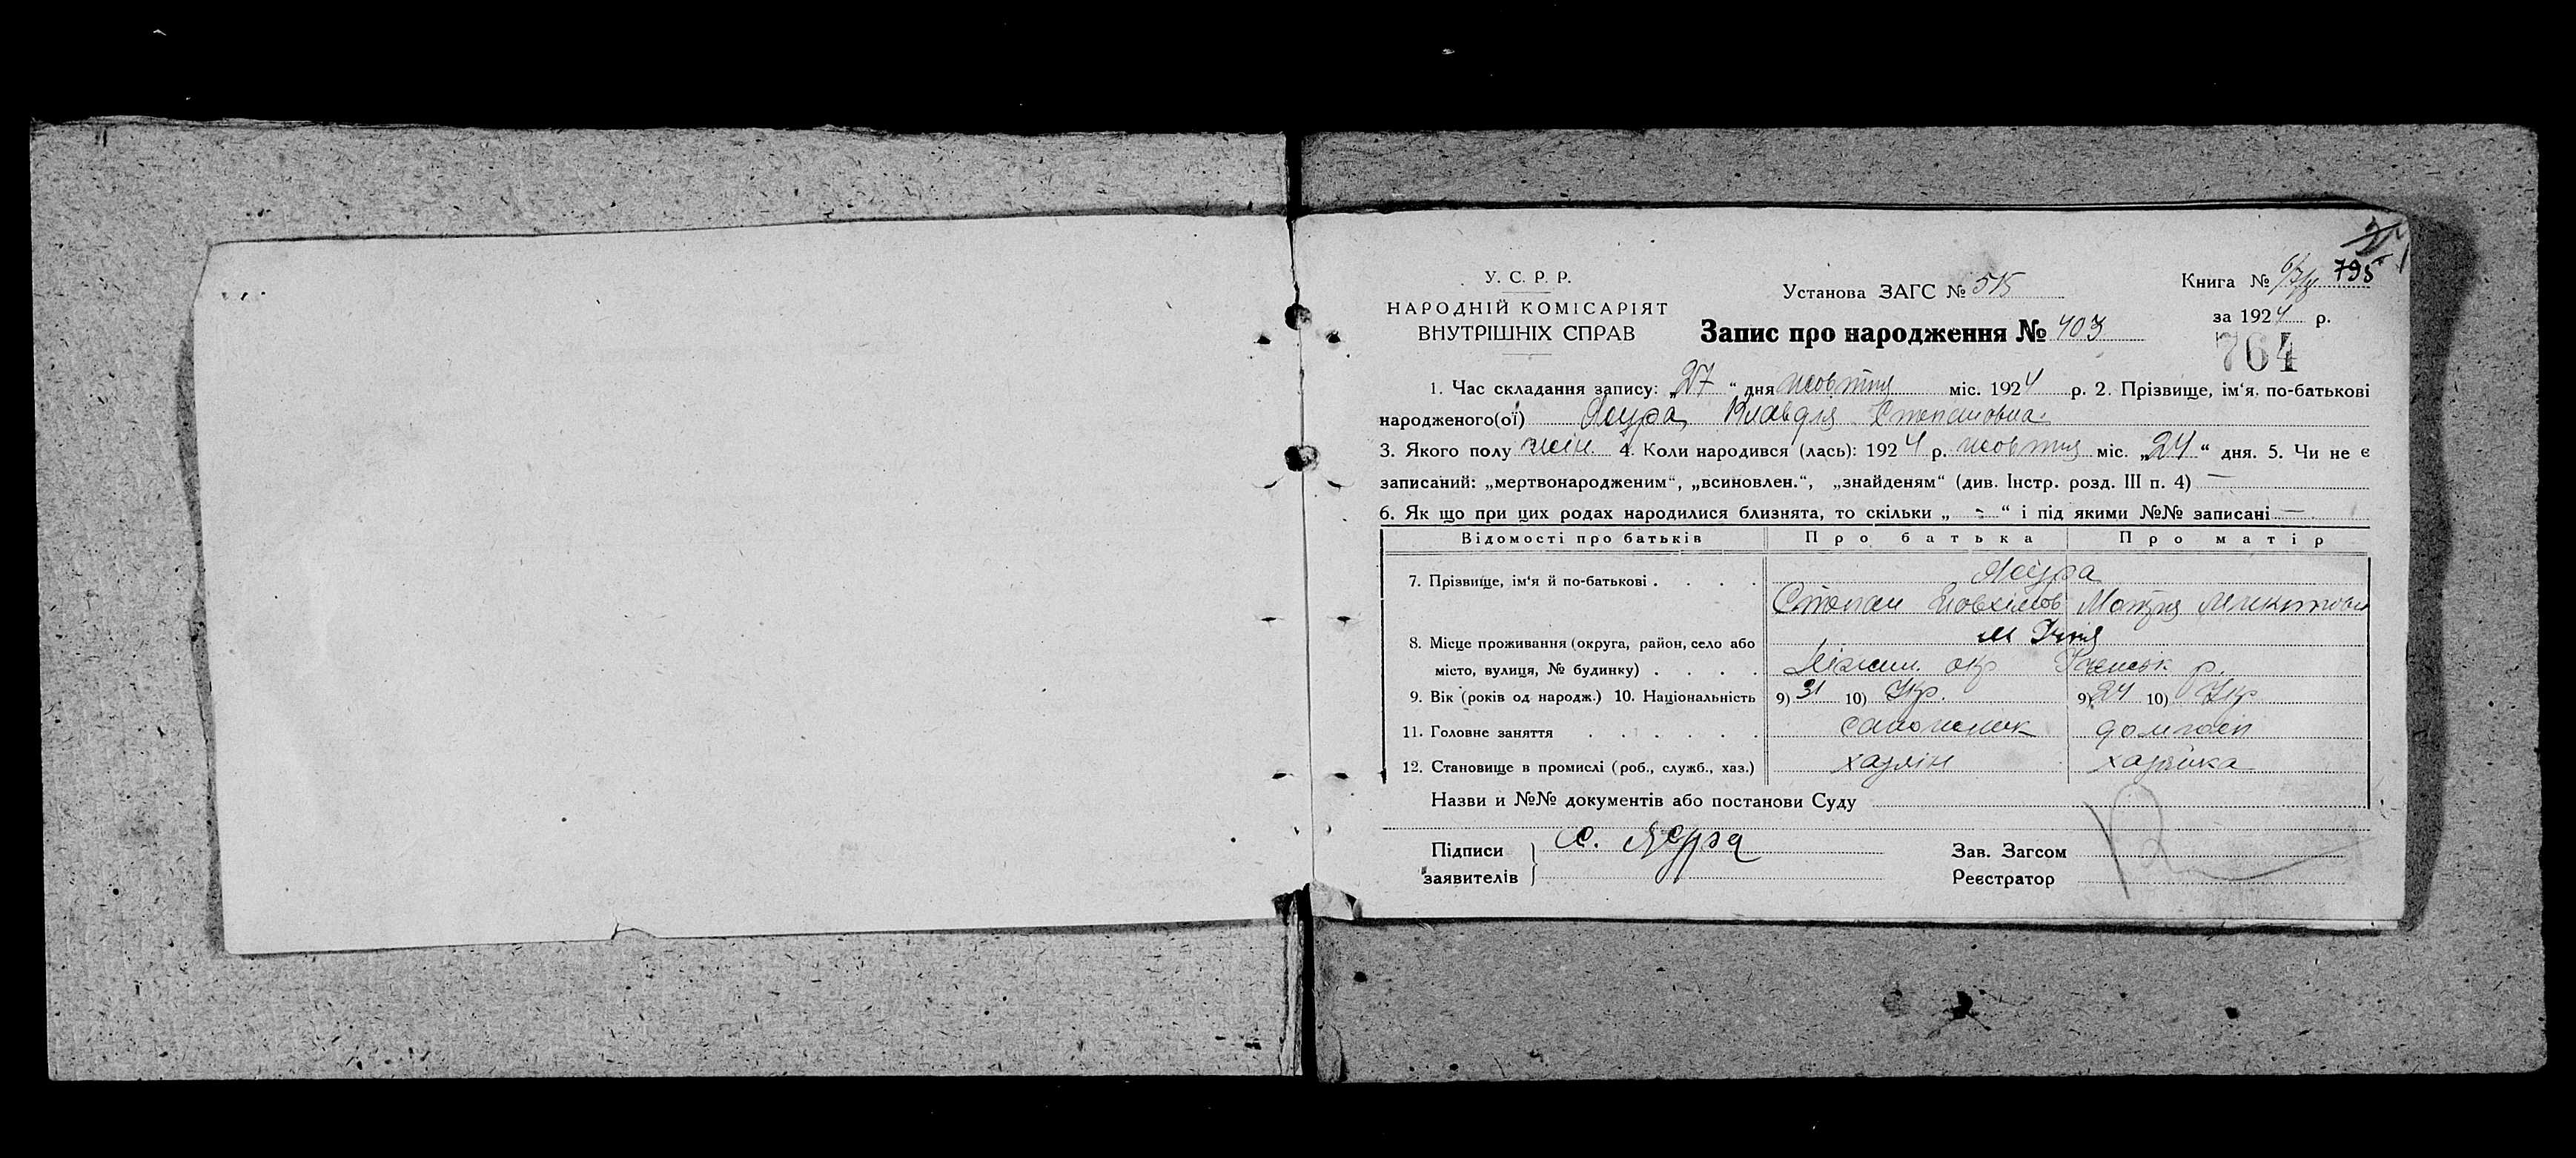 У. С. Р. Р.
НАРОДНІЙ КОМІСАРІЯТ
ВНУТРІШНІХ СПРАВ
Установа ЗАГС № 515
Книга № 795
за 1924 р.
Запис про народження № 403
764
1. Час складання запису: „27“ дня жовтня міс. 1924 р. 2. Прізвище, ім‘я, по-батькові
народженого(ої) Ясура Клавдія Степановна
3. Якого полу жін. 4. Коли народився (лась): 1924 р. жовтня міс. „24“ дня. 5. Чи не є
записаний: „мертвонародженим“, „всиновлен.“, „знайденям“ (див. Інстр. розд. III п. 4) —
6. Як що при цих родах народилися близнята, то скільки „ - “ і під якими №№ записані —
Відомості про батьків Про батька Про матір
7. Прізвище, ім‘я й по-батькові . . . . Ясура
Степан Мотря
8. Місце проживання (округа, район, село або м Ічня
місто, вулиця, № будинку) . . . . Ніжин. окр р.
9. Вік (років од народж.) 10. Національність 9) 31 10) Укр. 9) 24 10) Укр
11. Головне заняття . . . . . . сапожник домгосп
12. Становище в промислі (роб., служб., хаз.) хазяін хазяйка
Назви и №№ документів або постанови Суду
Підписи
заявителів
С. Ясура
Зав. Загсом
Реєстратор